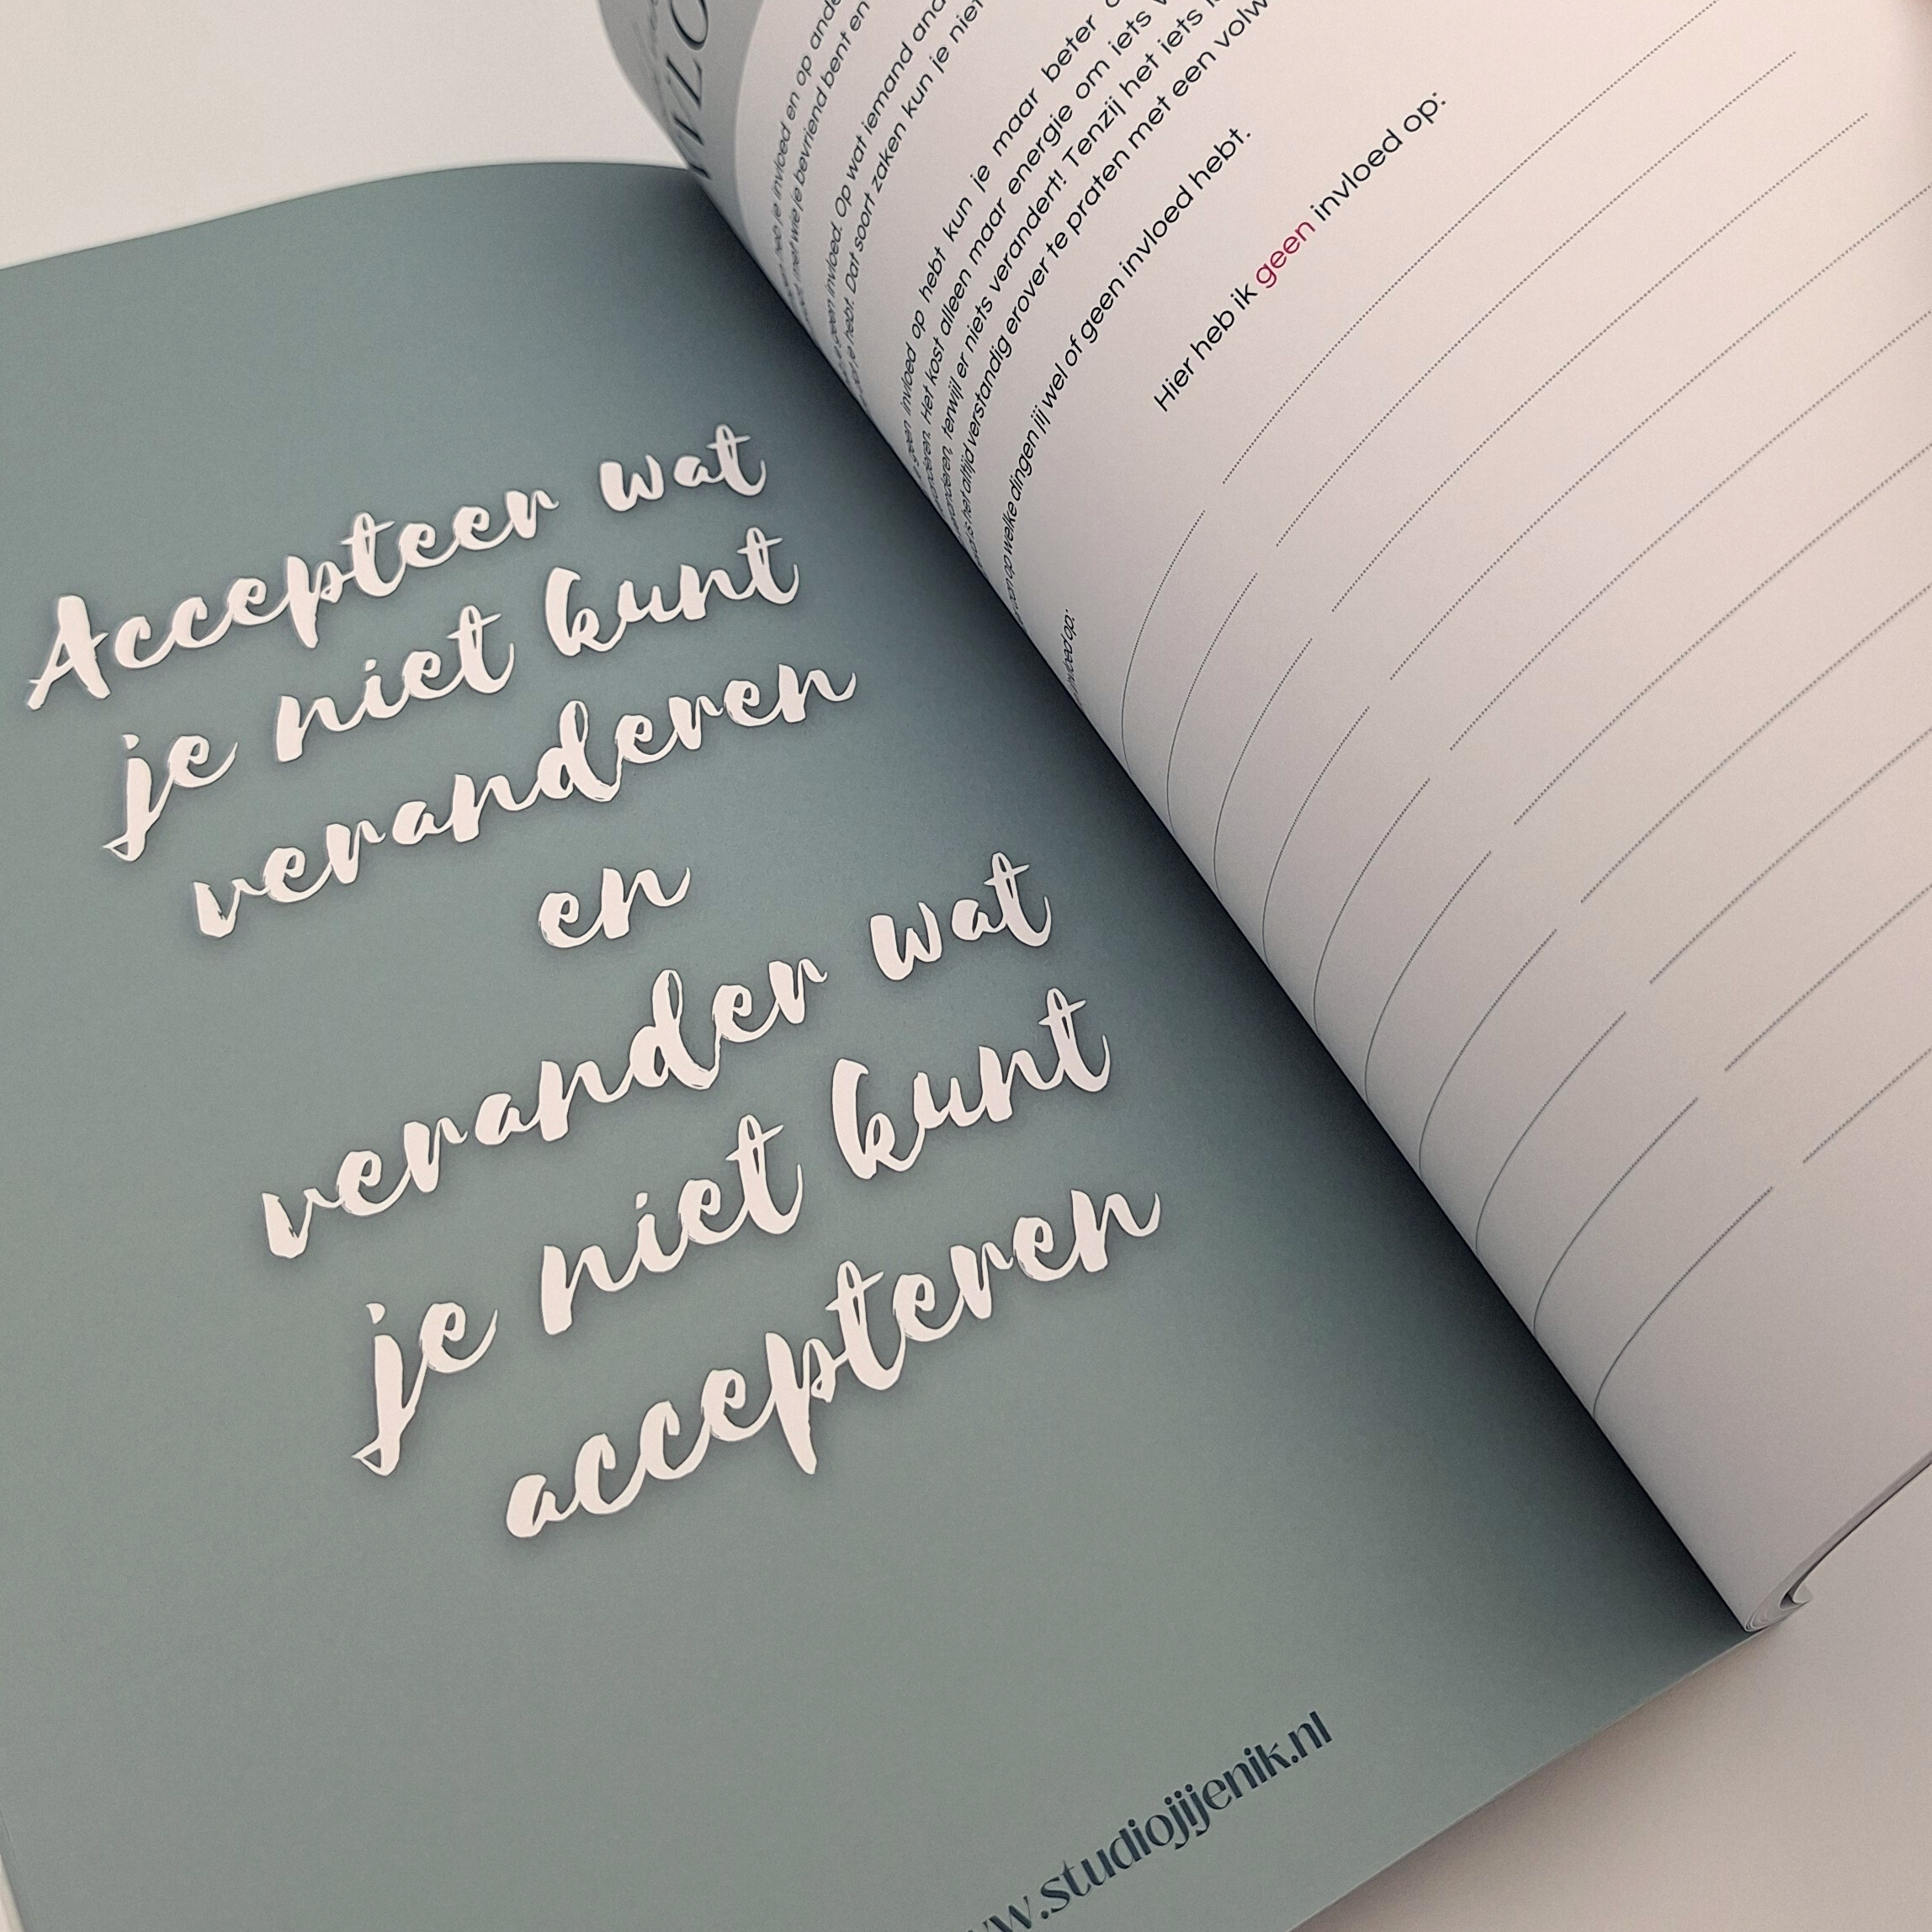 Accepteer wat
je niet kunt
veranderen
en
verander wat
je niet kunt
accepteren
www.studiojijenik.nl
je invloed en op
met wie je bevriend bent en
geen invloed. Op wat iemand
je hebt. Dat soort zaken kun je niet
geen invloed op hebt kun je maar beter
Het kost alleen maar energie om iets
terwijl er niets verandert! Tenzij het iets
is het altijd verstandig erover te praten met een
op welke dingen jij wel of geen invloed hebt.
invloed op:
Hier heb ik geen invloed op: